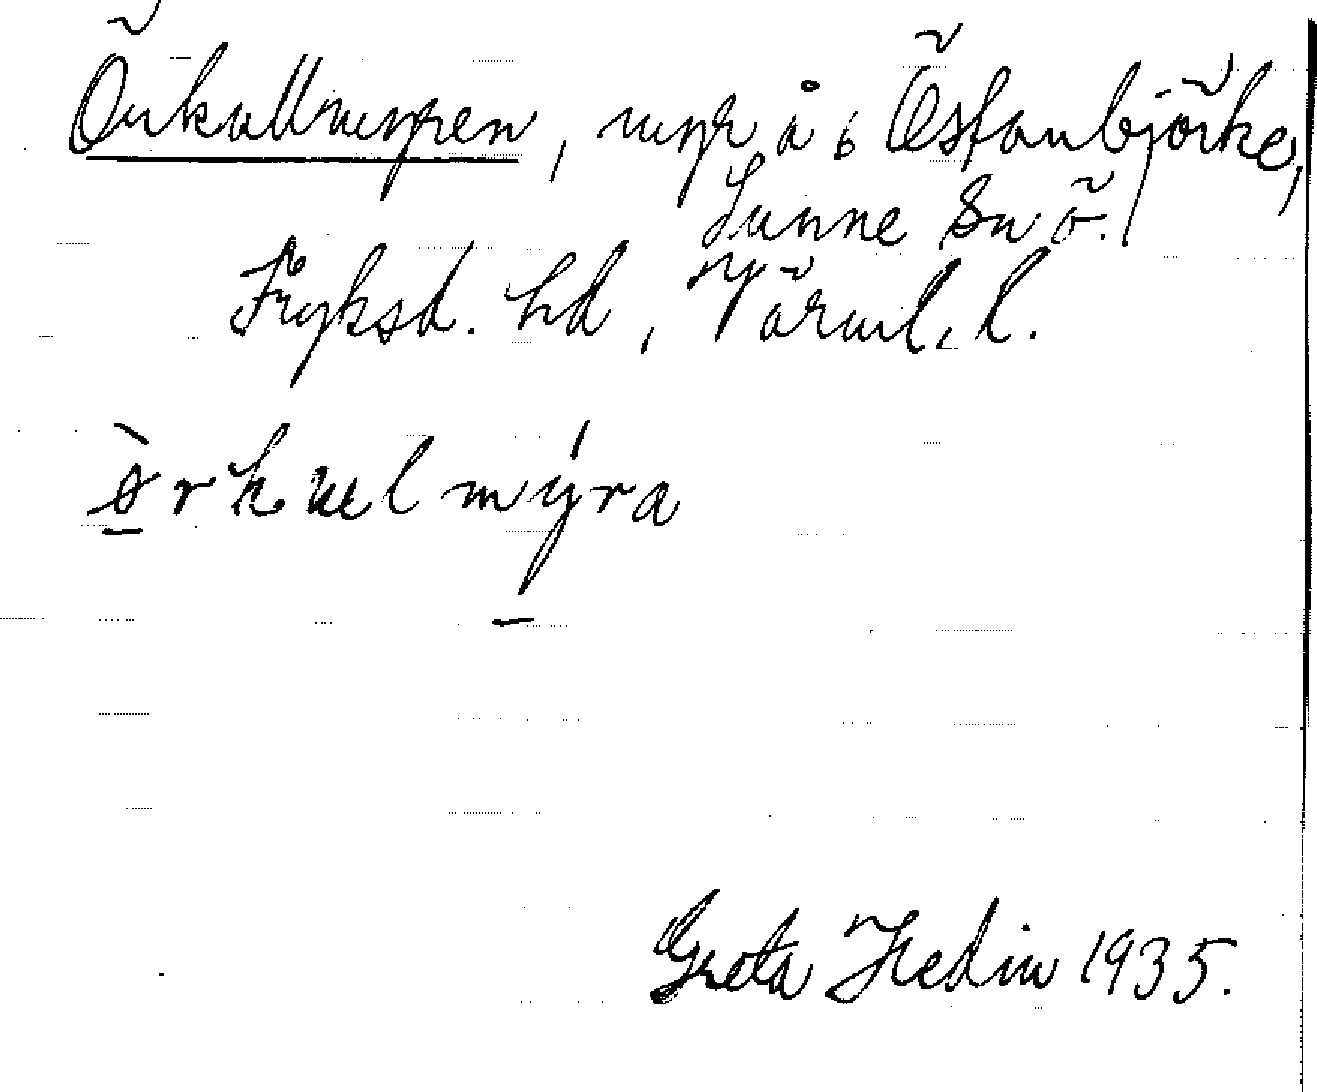 Örkallmyren, myr å 6 Östanbjörke,
Sunne sn ö.
Fryksd. hd, Värml. l.
Greta Hedin 1935.